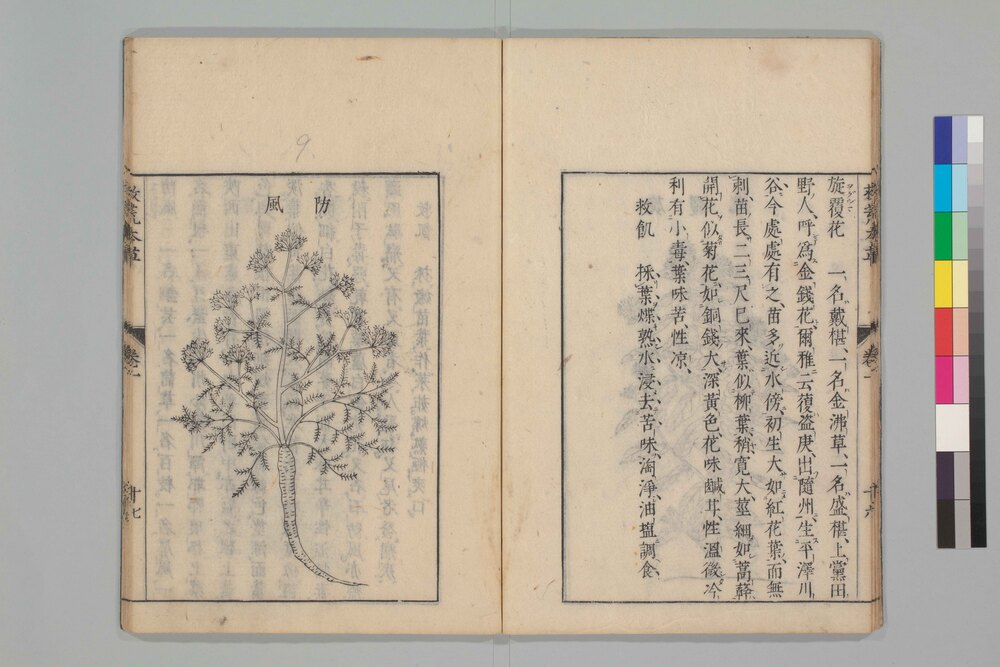 旋覆花　一名戴椹、一名金沸草、一名盛椹、上黨田
野人、呼爲金錢花、爾雅云復盗庚、出隨州、生平澤川
谷、今處處有之、苗多近水傍、初生大如紅花葉、而無
刺、苗長二三尺已來、葉似柳葉、稍寛大、莖細如蒿簳、
開花似菊花、如銅錢大、深黄色、花味鹹甘、性溫、微冷
利、有小毒、葉味苦、性凉、
救飢　採葉煠熟、水浸去苦味、淘淨、油塩調食、
救荒本草
卷一
十六
防風
9
救荒本草
卷一
十七